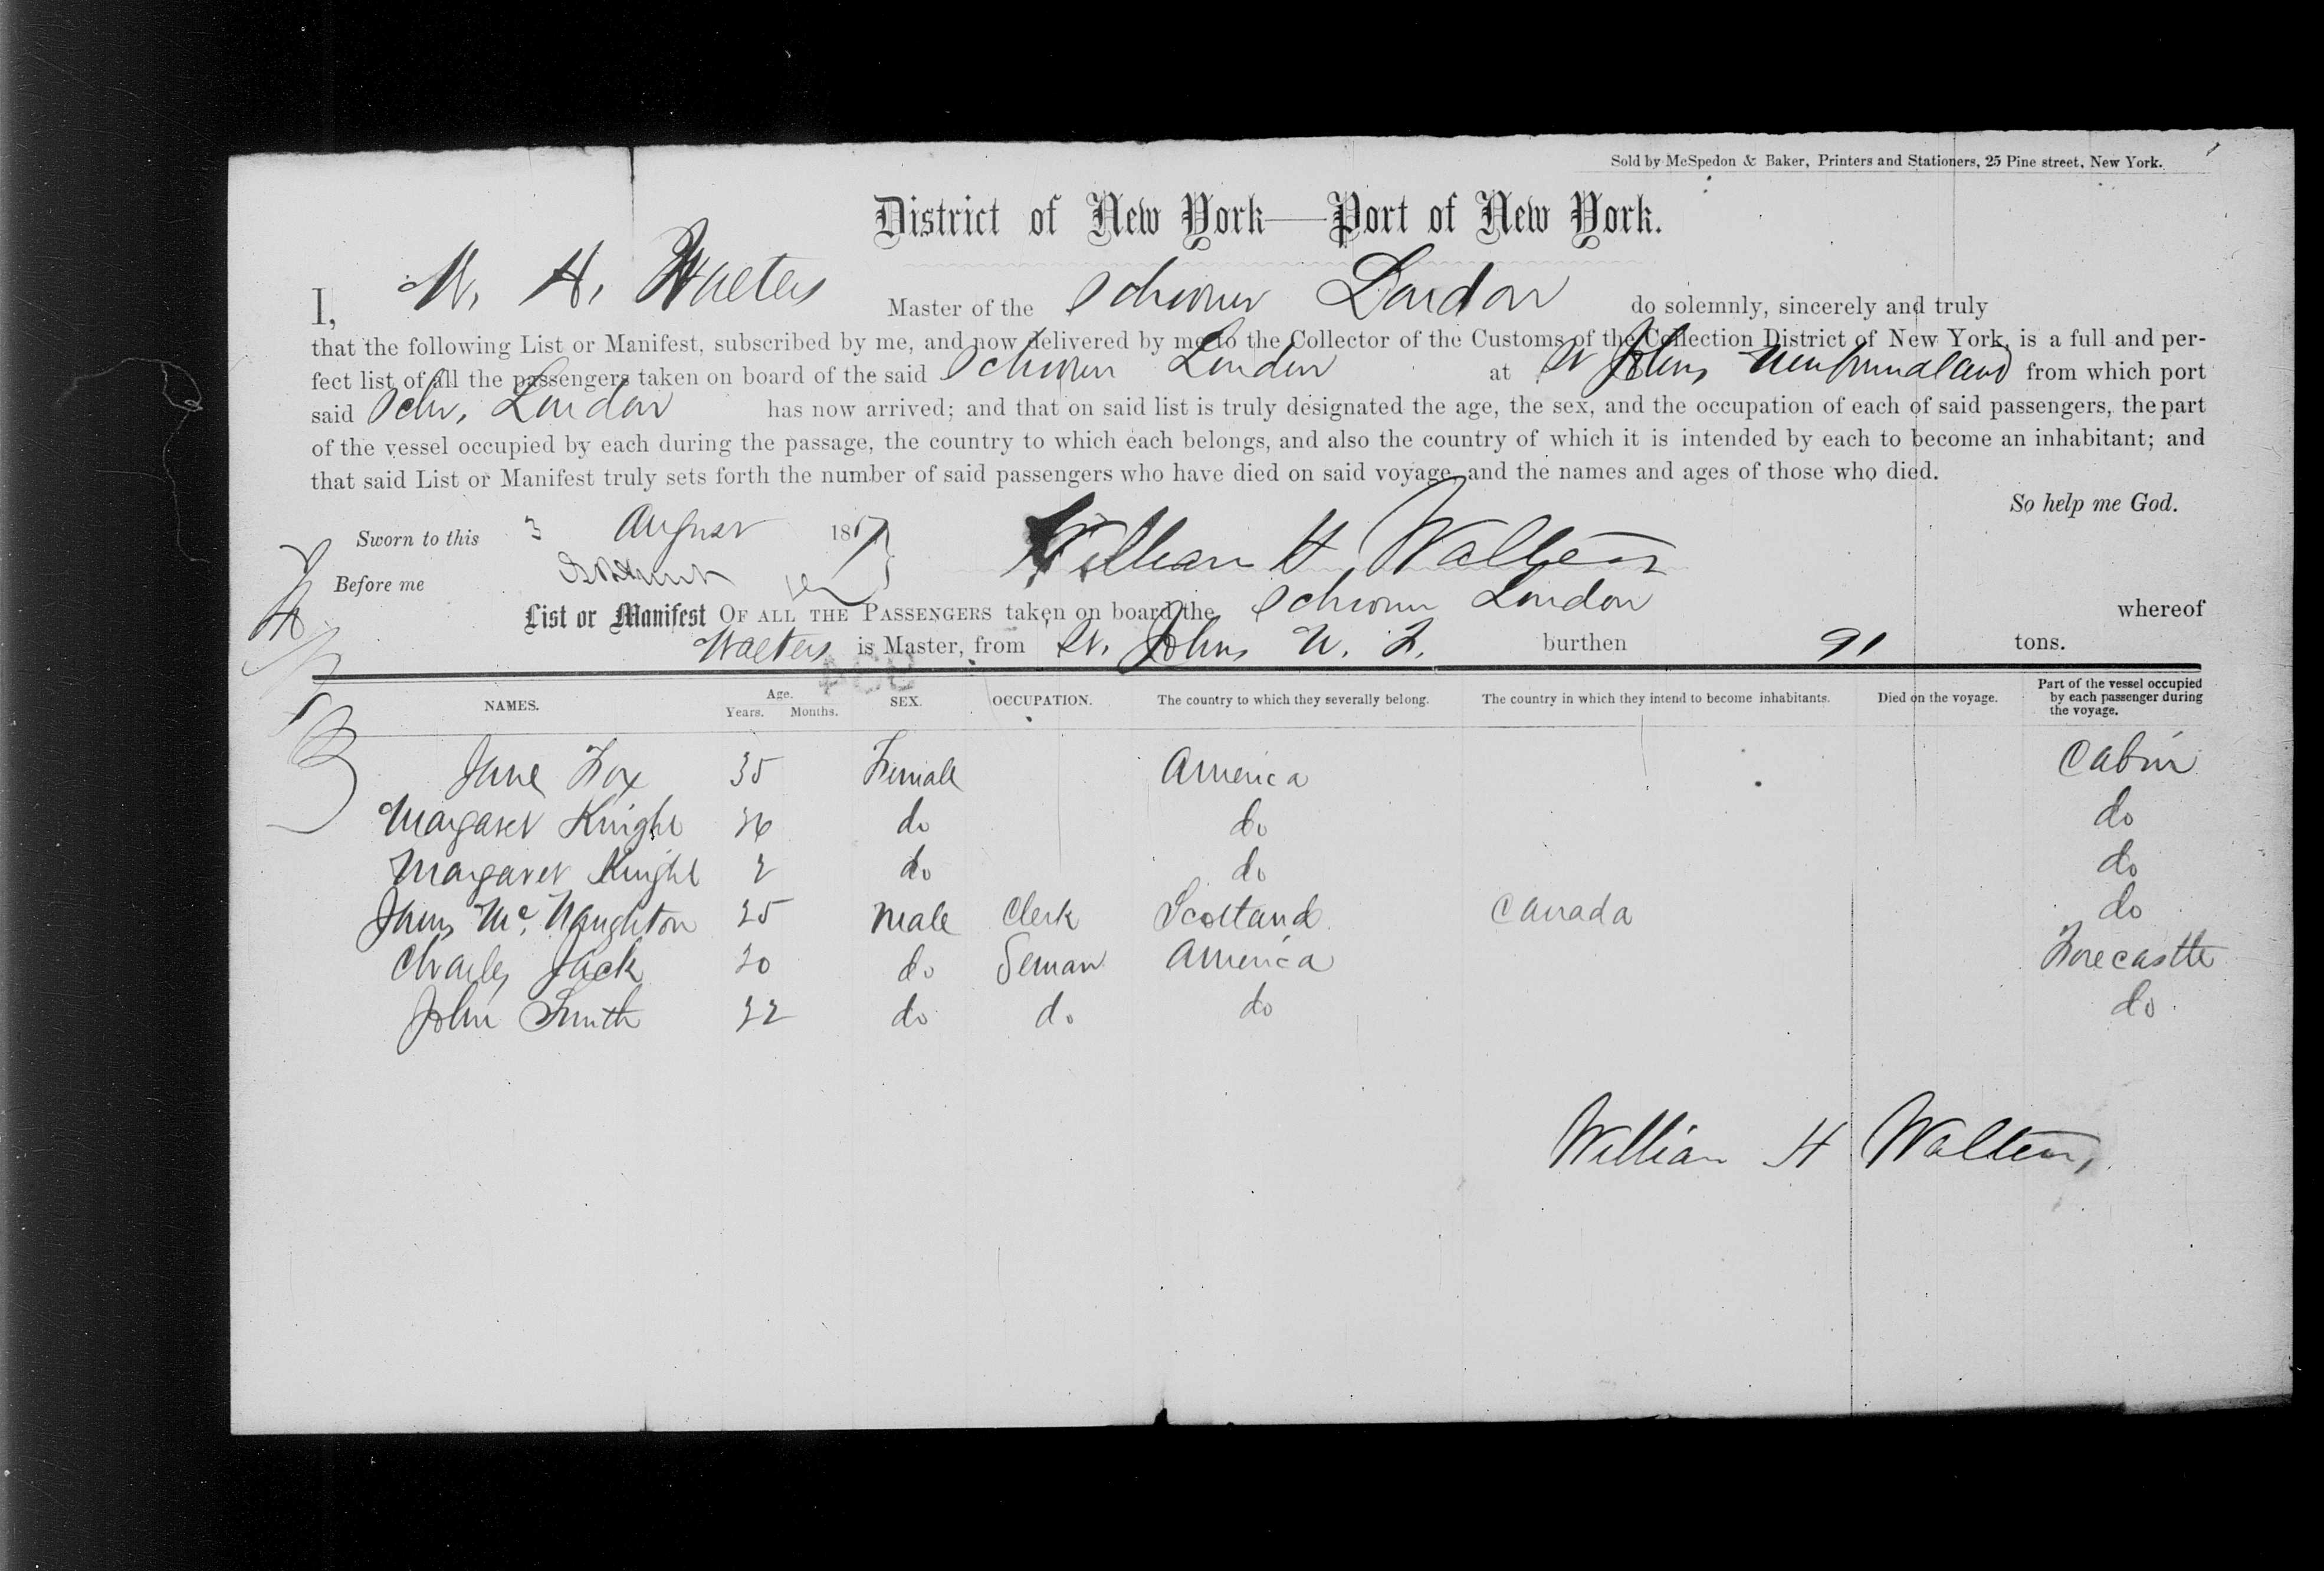 Sold by McSpedon & Baker, Printers and Stationers, 25 Pine street, New York.
District of New York—Port of New York.
I, W. H. Walters Master of the Schooner London do solemnly, sincerely and truly
that the following List or Manifest, subscribed by me, and now delivered by me to the Collector of the Customs of the Collection District of New York, is a full and per-
fect list of all the passengers taken on board of the said Schooner London at St Johns Newfoundland from which port
said Schr. London has now arrived; and that on said list is truly designated the age, the sex, and the occupation of each of said passengers, the part
of the vessel occupied by each during the passage, the country to which each belongs, and also the country of which it is intended by each to become an inhabitant; and
that said List or Manifest truly sets forth the number of said passengers who have died on said voyage, and the names and ages of those who died.
So help me God.
Sworn to this 3 August 1857 William H Walters
Before me
List or Manifest OF ALL THE PASSENGERS taken on board the Schooner London whereof
Walters is Master, from St. Johns N. F. burthen 91 tons.
NAMES. Age. Years. Months. SEX. OCCUPATION. The country to which they severally belong. The country in which they intend to become inhabitants. Died on the voyage. Part of the vessel occupied by each passenger during the voyage.
Jane Fox 35 Female America Cabin
Margaret Knight 36 do do do
Margaret Knight 2 do do do
James Mc. Naughton 25 Male Clerk Scotland Canada do
Charles Jack 20 do Seman America Forecastle
John Smith 22 do do do do
William H Walters,